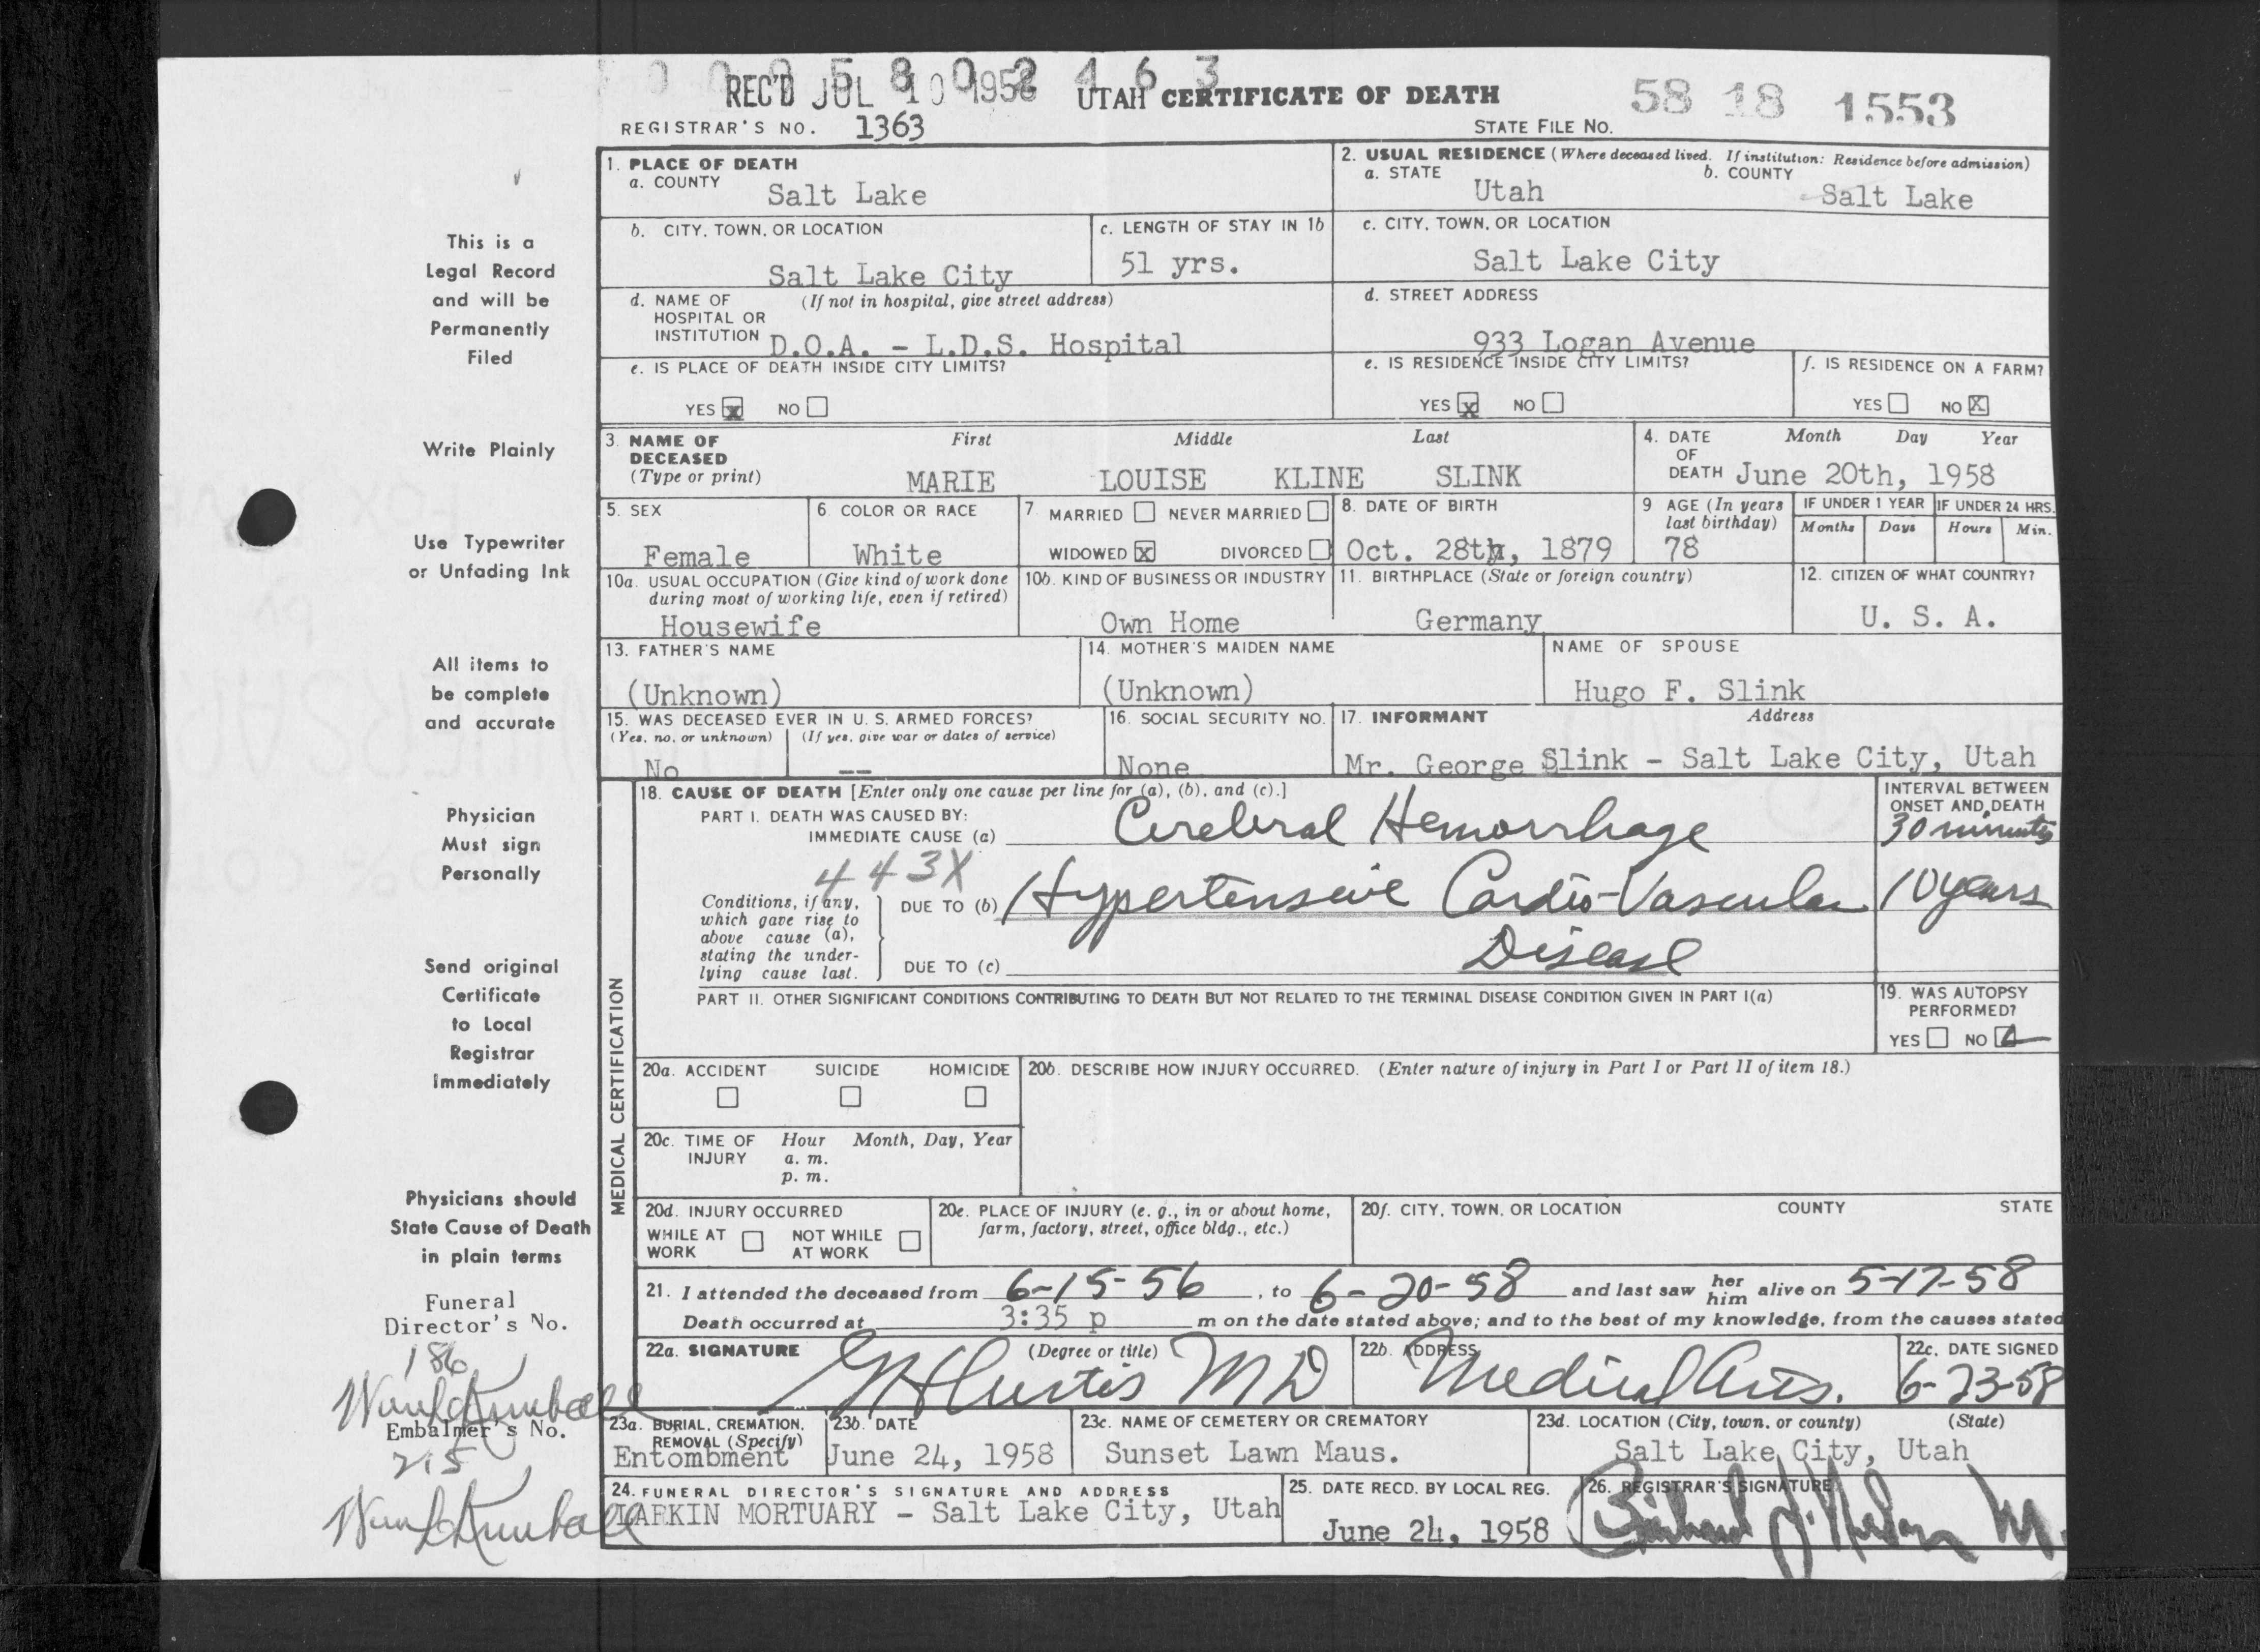 0 0 0 5 8 0 2 4 6 3
REC'D JUL 10 1958 UTAH CERTIFICATE OF DEATH 58 18 1553
REGISTRAR'S NO. 1363 STATE FILE NO.
1. PLACE OF DEATH
a. COUNTY Salt Lake
2. USUAL RESIDENCE (Where deceased lived. If institution: Residence before admission)
a. STATE Utah b. COUNTY Salt Lake
b. CITY, TOWN, OR LOCATION Salt Lake City
c. LENGTH OF STAY IN 1b 51 yrs.
c. CITY, TOWN, OR LOCATION Salt Lake City
d. NAME OF HOSPITAL OR INSTITUTION (If not in hospital, give street address) D.O.A. - L.D.S. Hospital
d. STREET ADDRESS 933 Logan Avenue
e. IS PLACE OF DEATH INSIDE CITY LIMITS?
YES x NO
e. IS RESIDENCE INSIDE CITY LIMITS?
YES x NO
f. IS RESIDENCE ON A FARM?
YES NO X
3. NAME OF DECEASED (Type or print) First Middle Last
MARIE LOUISE KLINE SLINK
4. DATE OF DEATH Month Day Year
June 20th, 1958
5. SEX Female
6. COLOR OR RACE White
7. MARRIED NEVER MARRIED
WIDOWED x DIVORCED
8. DATE OF BIRTH Oct. 28th, 1879
9 AGE (In years last birthday) 78
IF UNDER 1 YEAR Months Days
IF UNDER 24 HRS. Hours Min.
10a. USUAL OCCUPATION (Give kind of work done during most of working life, even if retired) Housewife
10b. KIND OF BUSINESS OR INDUSTRY Own Home
11. BIRTHPLACE (State or foreign country) Germany
12. CITIZEN OF WHAT COUNTRY? U. S. A.
13. FATHER'S NAME (Unknown)
14. MOTHER'S MAIDEN NAME (Unknown)
NAME OF SPOUSE Hugo F. Slink
15. WAS DECEASED EVER IN U. S. ARMED FORCES?
(Yes, no, or unknown) (If yes, give war or dates of service)
No --
16. SOCIAL SECURITY NO. None
17. INFORMANT Address
Mr. George Slink - Salt Lake City, Utah
MEDICAL CERTIFICATION
18. CAUSE OF DEATH [Enter only one cause per line for (a), (b), and (c).]
INTERVAL BETWEEN ONSET AND DEATH
PART I. DEATH WAS CAUSED BY:
IMMEDIATE CAUSE (a) Cerebral Hemorrhage 30 minutes
443X
Conditions, if any, which gave rise to above cause (a), stating the underlying cause last.
DUE TO (b) Hypertensive Cardio-Vascular 10 years
Disease
DUE TO (c)
PART II. OTHER SIGNIFICANT CONDITIONS CONTRIBUTING TO DEATH BUT NOT RELATED TO THE TERMINAL DISEASE CONDITION GIVEN IN PART I(a)
19. WAS AUTOPSY PERFORMED?
YES NO
20a. ACCIDENT SUICIDE HOMICIDE
20b. DESCRIBE HOW INJURY OCCURRED. (Enter nature of injury in Part I or Part II of item 18.)
20c. TIME OF INJURY Hour Month, Day, Year
a. m.
p. m.
20d. INJURY OCCURRED
WHILE AT WORK NOT WHILE AT WORK
20e. PLACE OF INJURY (e. g., in or about home, farm, factory, street, office bldg., etc.)
20f. CITY, TOWN, OR LOCATION COUNTY STATE
21. I attended the deceased from 6-15-56, to 6-20-58 and last saw her him alive on 5-17-58
Death occurred at 3:35 p m on the date stated above; and to the best of my knowledge, from the causes stated
22a. SIGNATURE (Degree or title) Curtis MD
22b. ADDRESS Medical Arts.
22c. DATE SIGNED 6-23-58
23a. BURIAL, CREMATION, REMOVAL (Specify) Entombment
23b. DATE June 24, 1958
23c. NAME OF CEMETERY OR CREMATORY Sunset Lawn Maus.
23d. LOCATION (City, town, or county) (State)
Salt Lake City, Utah
24. FUNERAL DIRECTOR'S SIGNATURE AND ADDRESS
LARKIN MORTUARY - Salt Lake City, Utah
25. DATE RECD. BY LOCAL REG. June 24, 1958
26. REGISTRAR'S SIGNATURE
This is a
Legal Record
and will be
Permanently
Filed
Write Plainly
Use Typewriter
or Unfading Ink
All items to
be complete
and accurate
Physician
Must sign
Personally
Send original
Certificate
to Local
Registrar
Immediately
Physicians should
State Cause of Death
in plain terms
Funeral
Director's No.
186
Embalmer's No.
215